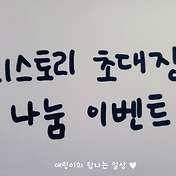 티스토리 초대장
나눔 이벤트
애린이의 탐나는 일상 ♥